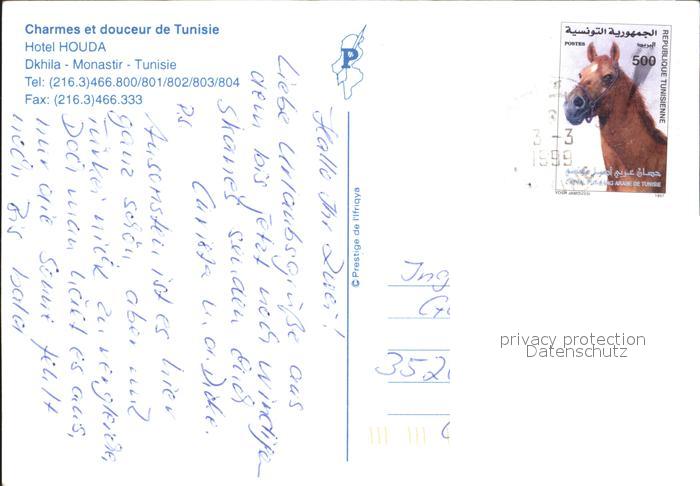 Charmes et douceur de Tunisie
Hotel HOUDA
Dkhila - Monastir - Tunisie
Tel: (216.3)466.800/801/802/803/804
Fax: (216.3)466.333
Hallo Ihr Zwei!
Liebe Urlaubsgrüße aus
dem bis jetzt noch windigen
Skanes senden Euch
u. a.
PS
Ansonsten ist es hier
ganz schön, aber mit
nicht zu vergleichen
Doch man hält es aus,
nur die Sonne fehlt
noch. Bis bald
P
© Prestige de l'Ifriqya
الجمهورية التونسية
POSTES البريد
500
REPUBLIQUE TUNISIENNE
حصان عربي أصيل
CHEVAL PUR-SANG ARABE DE TUNISIE
1997
3 -3
1999
Ing
352
privacy protection
Datenschutz